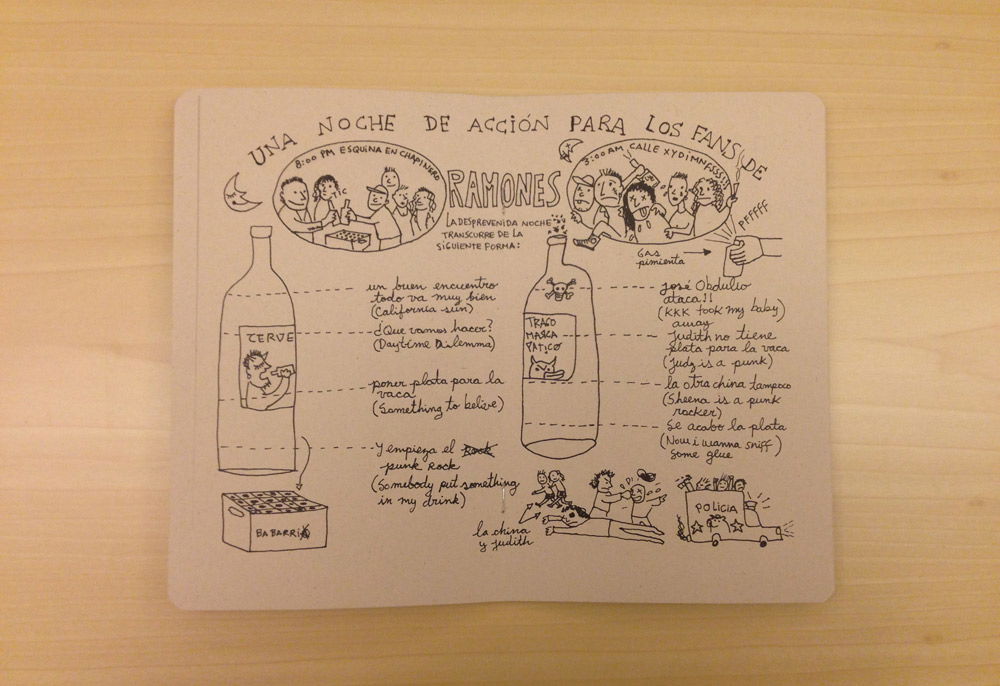 UNA NOCHE DE ACCIÓN PARA LOS FANS DE
RAMONES
8:00 PM ESQUINA EN CHAPINERO
TIC
LA DESPREVENIDA NOCHE
TRANSCURRE DE LA
SIGUIENTE FORMA:
3:00 AM CALLE XYDIMNFSSSS!!!
PFFFFF
GAS
pimienta
un buen encuentro
todo va muy bien
(California sun)
CERVE
¿Que vamos hacer?
(Daytime Dilemma)
poner plata para la
vaca
(Something to belive)
Y empieza el Rock
punk Rock
(Somebody put something
in my drink)
BABARRIA
TRAGO
MARCA
PATICO
José Obdulio
ataca!!
(KKK took my baby)
away
Judith no tiene
plata para la vaca
(Judy is a punk)
la otra china tampoco
(Sheena is a punk
rocker)
Se acabo la plata
(Now i wanna sniff)
some glue
la china
y judith
POLICIA